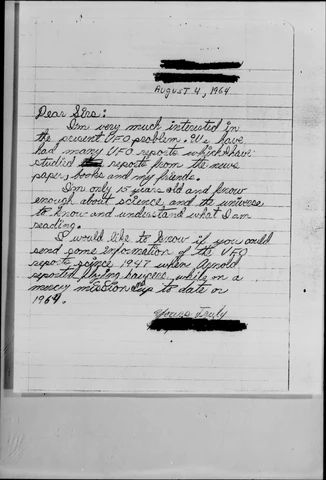 August 4, 1964
Dear Sirs:
I'm very much interested in
the present UFO problem. We have
had many UFO reports which have
studied reports from the news
paper, books and my friends.
I'm only 15 years old and know
enough about science, and the universe
to know and understand what I am
reading.
I would like to know if you could
send some information of the UFO
reports science 1947 when Arnold
reported flying saucers while on a
mercy mission up to date or
1964.
Yours Truly